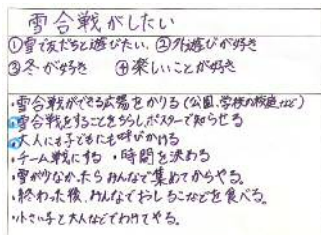 雪合戦がしたい
①雪で友だちと遊びたい ②外遊びが好き
③冬が好き ④楽しいことが好き
・雪合戦ができる広場をかりる(公園、学校の校庭など)
・雪合戦をすることをちらし、ポスターで知らせる
・大人にも子どもにも呼びかける
・チーム戦にする ・時間を決める
・雪が少なかったらみんなで集めてからやる。
・終わった後、みんなでおしるこなどを食べる。
・小さい子と大人などでわけてやる。